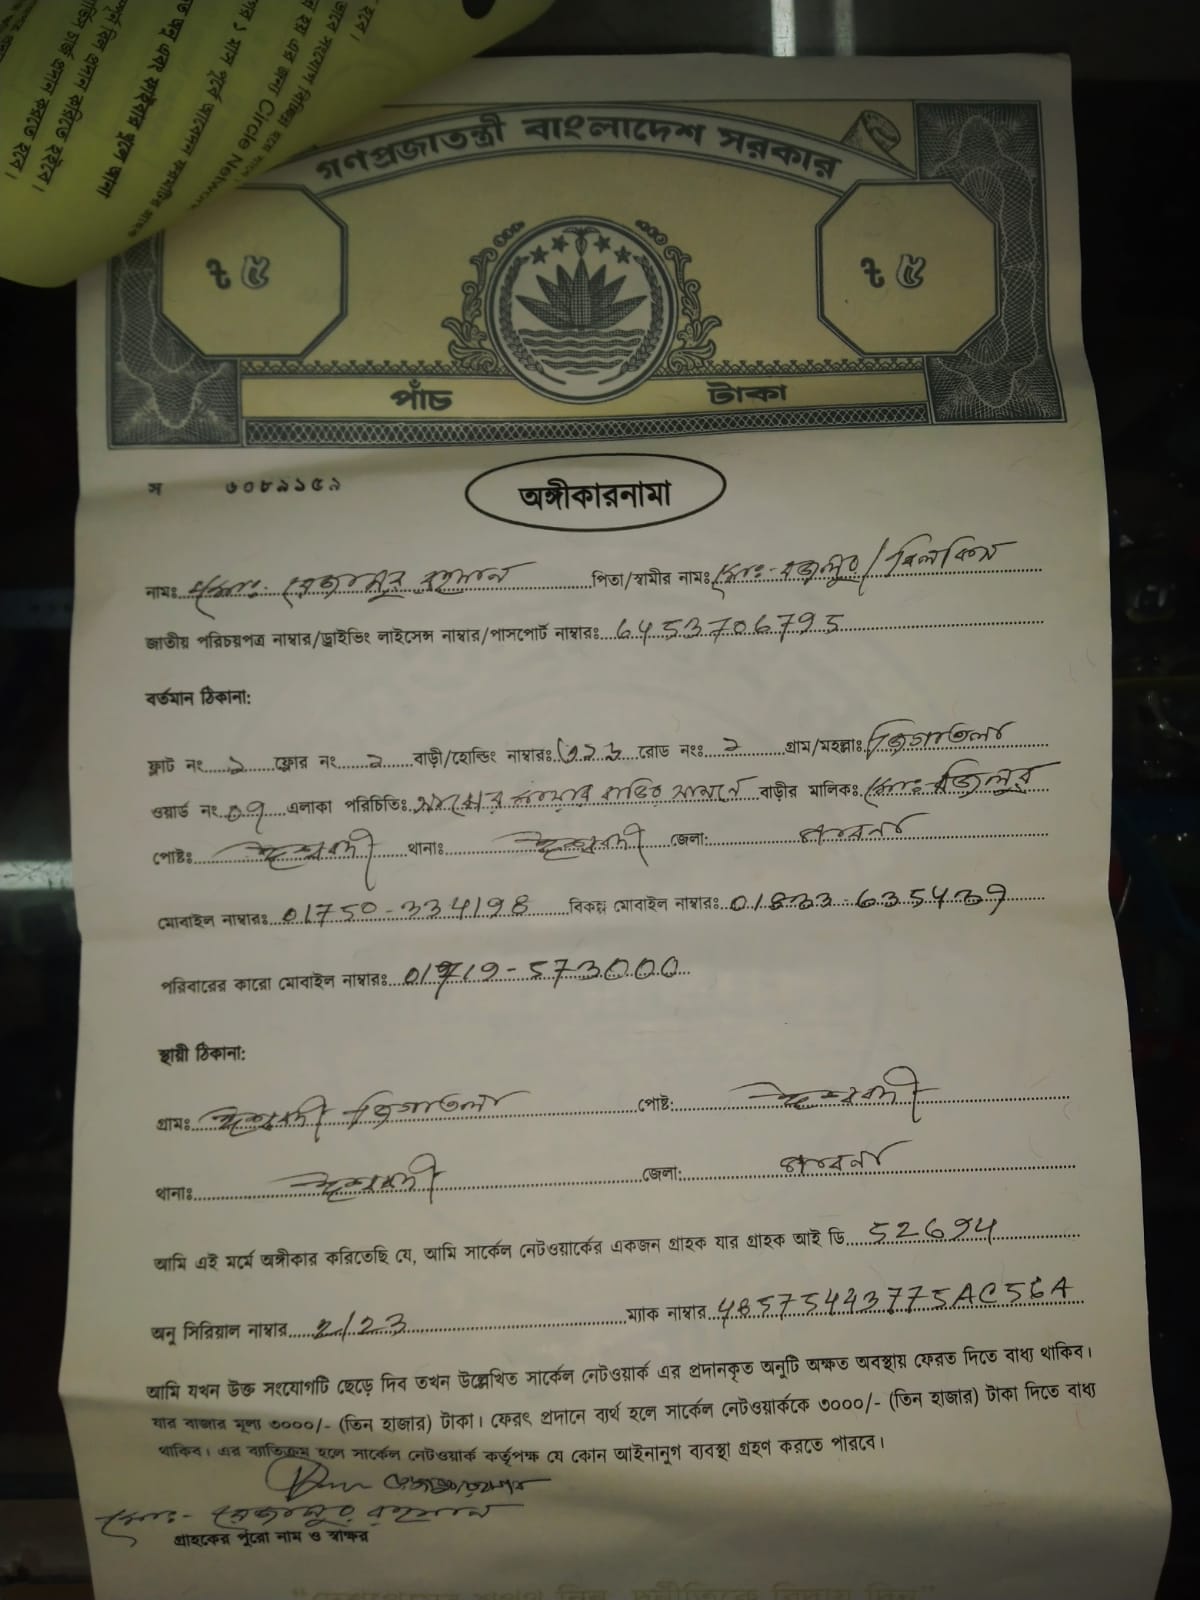 গণপ্রজাতন্ত্রী বাংলাদেশ সরকার
৳ ৫ ৳ ৫
পাঁচ টাকা
স ৩০৮৯১৫৯
অঙ্গীকারনামা
নামঃ মোঃ রেজানুর রহমান পিতা/স্বামীর নামঃ মোঃ- বজলুর/বিলকিস
জাতীয় পরিচয়পত্র নাম্বার/ড্রাইভিং লাইসেন্স নাম্বার/পাসপোর্ট নাম্বারঃ 6453706795
বর্তমান ঠিকানা:
ফ্লাট নং ১ ফ্লোর নং ২ বাড়ী/হোল্ডিং নাম্বারঃ রোড নংঃ ২ গ্রাম/মহল্লাঃ জিগাতলা
ওয়ার্ড নং 07 এলাকা পরিচিতিঃ বাড়ির সামনে বাড়ীর মালিকঃ মোঃ বজলুর
পোষ্টঃ ঈশ্বরদী থানাঃ ঈশ্বরদী জেলা: পাবনা
মোবাইল নাম্বারঃ 01750-334198 বিকল্প মোবাইল নাম্বারঃ 01833-635439
পরিবারের কারো মোবাইল নাম্বারঃ 01719-573000
স্থায়ী ঠিকানা:
গ্রামঃ ঈশ্বরদী জিগাতলা পোষ্ট: ঈশ্বরদী
থানাঃ ঈশ্বরদী জেলা: পাবনা
আমি এই মর্মে অঙ্গীকার করিতেছি যে, আমি সার্কেল নেটওয়ার্কের একজন গ্রাহক যার গ্রাহক আই ডি 52694
অনু সিরিয়াল নাম্বার 2/23 ম্যাক নাম্বার 48575443775AC56A
আমি যখন উক্ত সংযোগটি ছেড়ে দিব তখন উল্লেখিত সার্কেল নেটওয়ার্ক এর প্রদানকৃত অনুটি অক্ষত অবস্থায় ফেরত দিতে বাধ্য থাকিব।
যার বাজার মূল্য ৩০০০/- (তিন হাজার) টাকা। ফেরৎ প্রদানে ব্যর্থ হলে সার্কেল নেটওয়ার্ককে ৩০০০/- (তিন হাজার) টাকা দিতে বাধ্য
থাকিব। এর ব্যতিক্রম হলে সার্কেল নেটওয়ার্ক কর্তৃপক্ষ যে কোন আইনানুগ ব্যবস্থা গ্রহণ করতে পারবে।
মোঃ- রেজানুর রহমান
গ্রাহকের পুরো নাম ও স্বাক্ষর